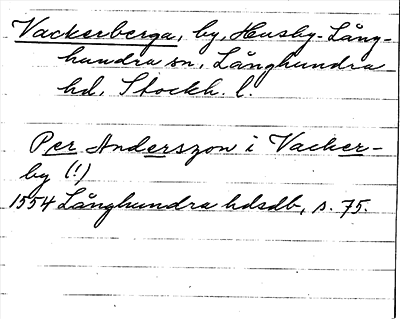 Vackerberga, by, Husby-Lång-
hundra sn, Långhundra
hd, Stockh. l.
Per Anderszon i Vacker-
by (!)
1554 Långhundra hdsdb, s. 75.